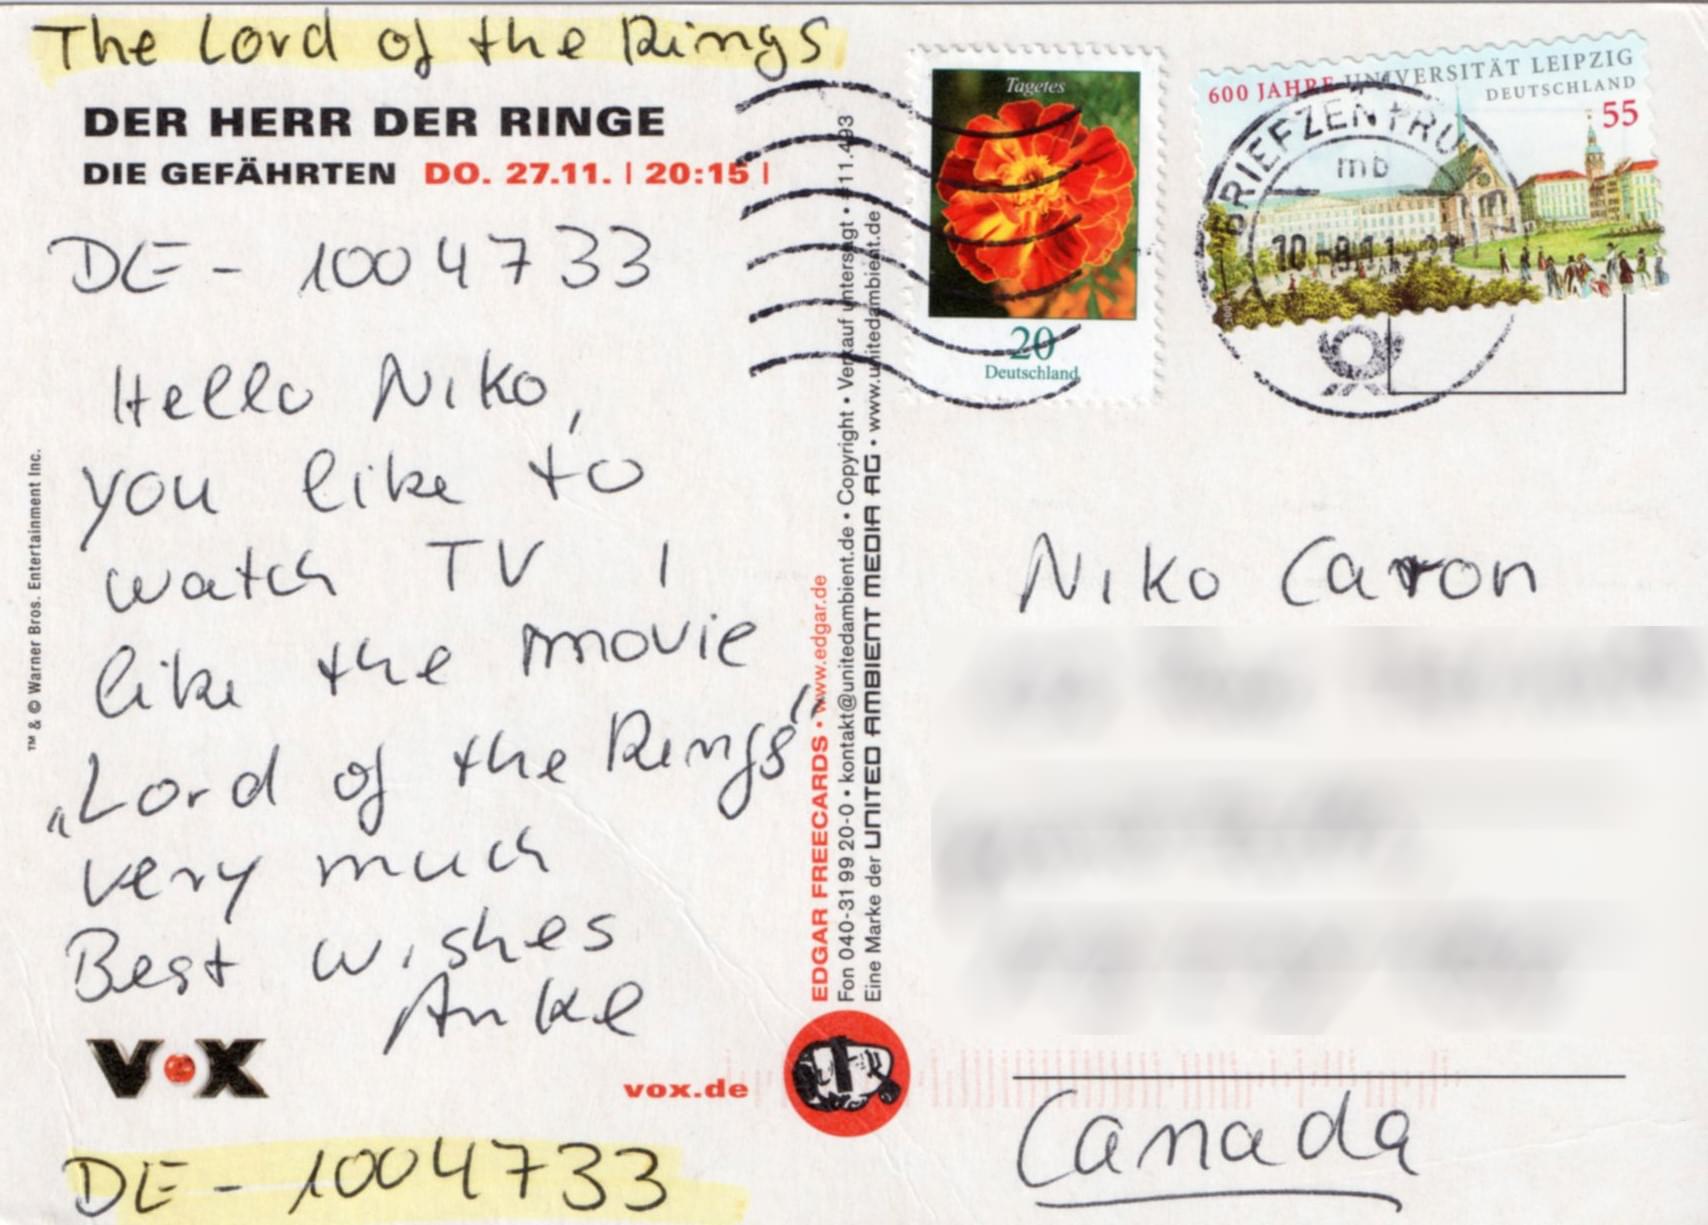 The Lord of the Rings
DER HERR DER RINGE
DIE GEFÄHRTEN DO. 27.11. | 20:15 |
DE - 1004733
Hello Niko,
you like to
watch TV I
like the movie
„Lord of the Rings“
very much
Best wishes
Anke
VOX
vox.de
DE - 1004733
™ & © Warner Bros. Entertainment Inc.
EDGAR FREECARDS • www.edgar.de
Fon 040-31 99 20-0 • kontakt@unitedambient.de • Copyright • Verkauf untersagt • #11.493
Eine Marke der UNITED AMBIENT MEDIA AG • www.unitedambient.de
Tagetes
20
Deutschland
600 JAHRE UNIVERSITÄT LEIPZIG
DEUTSCHLAND
55
BRIEFZENTRU
mb
Niko Caron
Canada